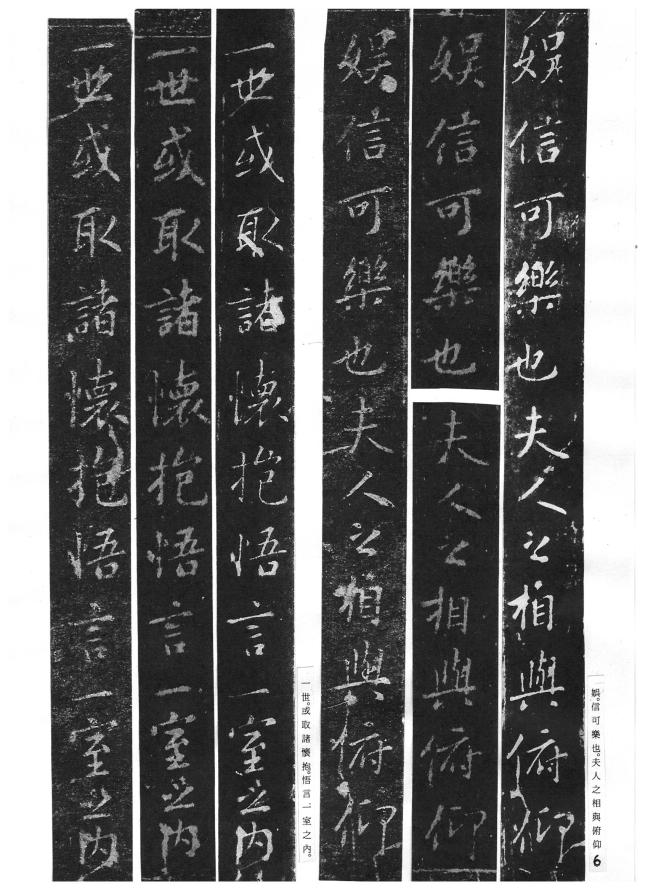 娛。信可樂也。夫人之相與俯仰
6
娛信可樂也夫人之相與俯仰
娛信可樂也夫人之相與俯仰
娛信可樂也夫人之相與俯仰
一世。或取諸懷抱。悟言一室之內。
一世或取諸懷抱悟言一室之內
一世或取諸懷抱悟言一室之內
一世或取諸懷抱悟言一室之內